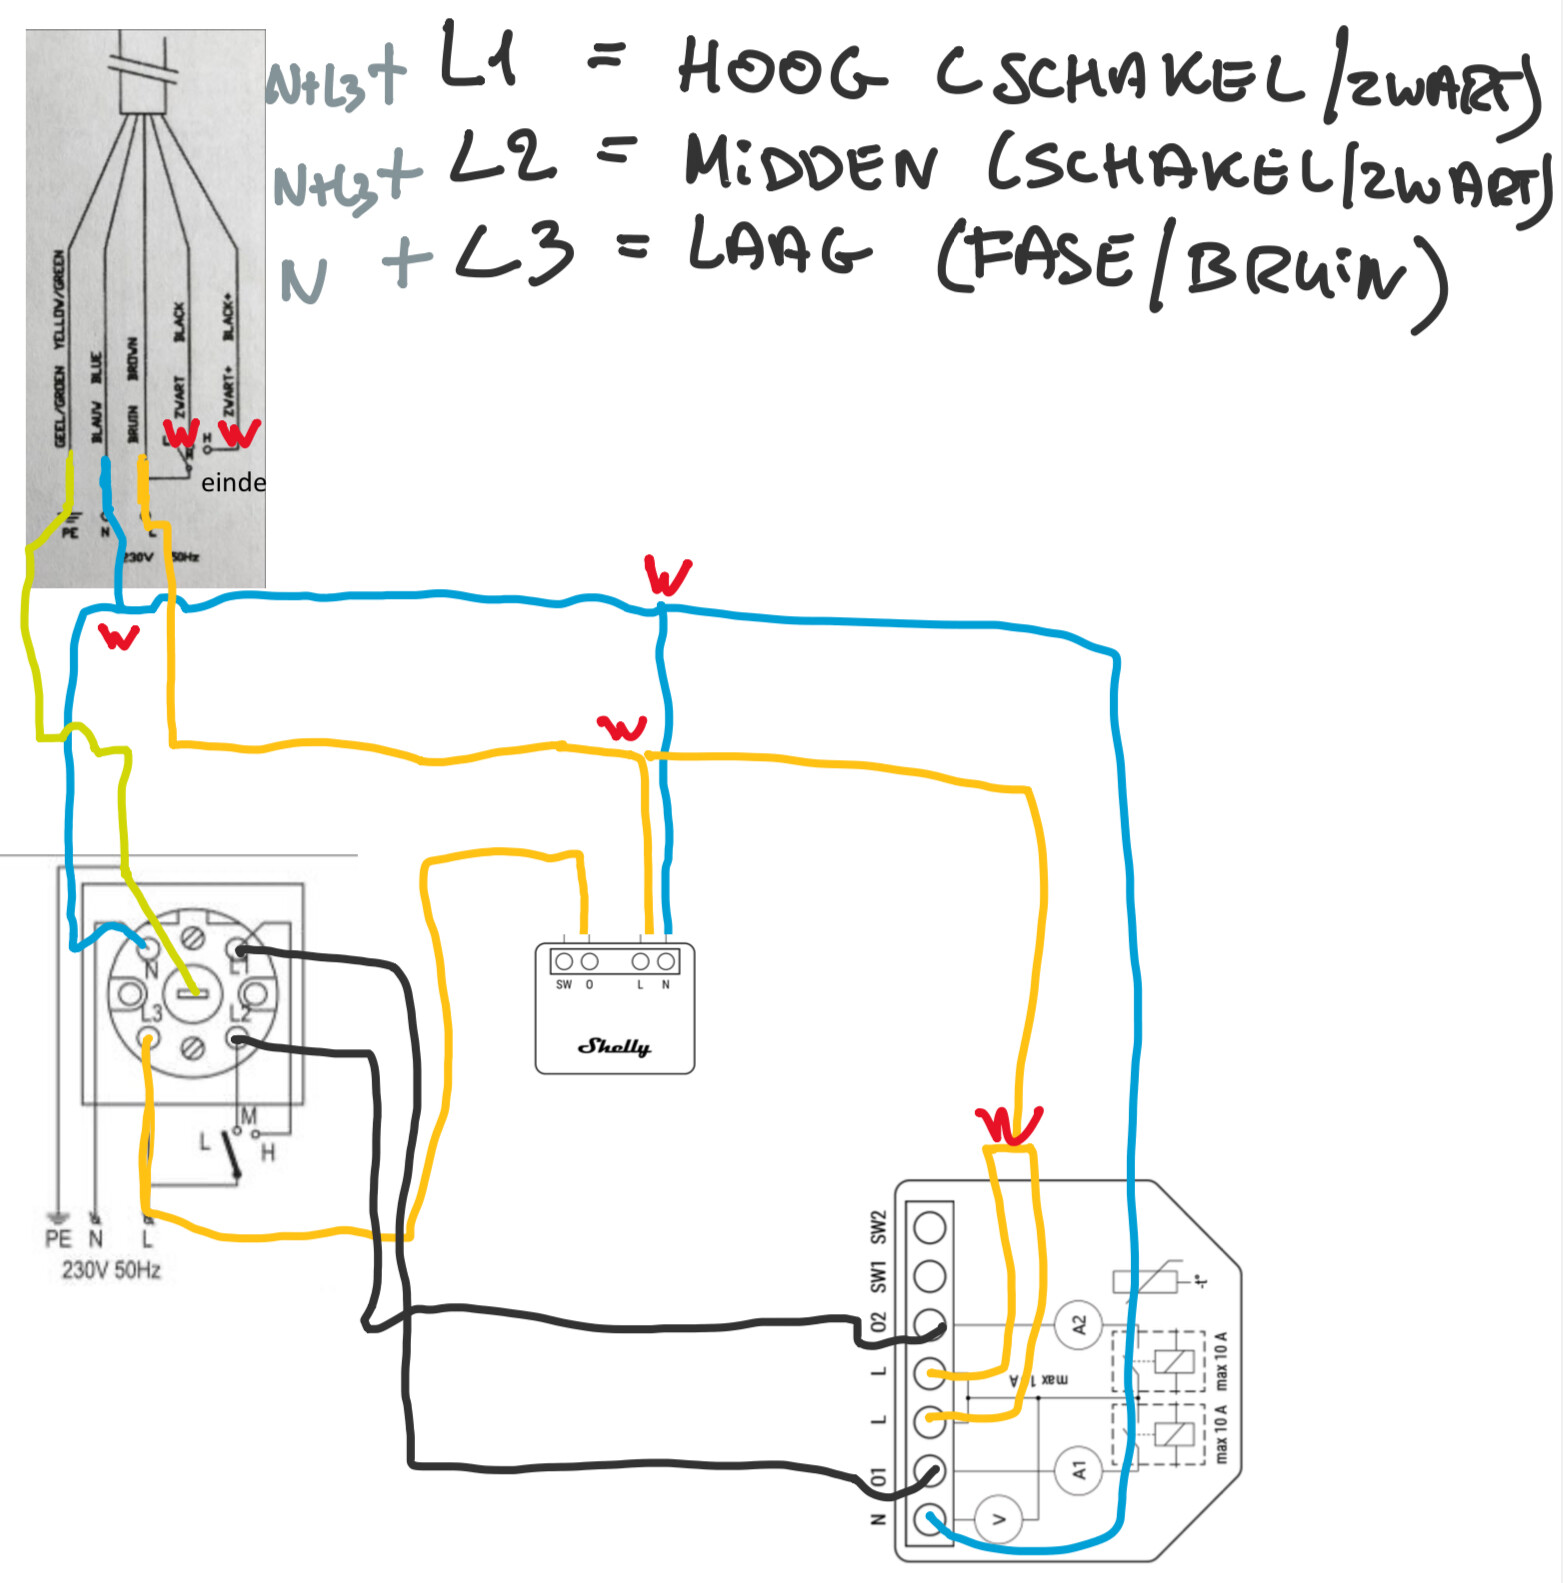 N+L3+ L1 = HOOG (SCHAKEL/ZWART)
N+L3+ L2 = MiDDEN (SCHAKEL/ZWART)
N + L3 = LAAG (FASE/BRUiN)
GEEL/GROEN YELLOW/GREEN
BLAUW BLUE
BRUIN BROWN
ZWART BLACK
ZWART+ BLACK+
W W
H
einde
PE N L
230V 50Hz
W
W
W
N L1
L3 L2
M
L H
PE N L
230V 50Hz
SW O L N
Shelly
W
SW2
SW1
O2
L
L
O1
N
-t°
A2
max 10 A
max 10 A
A1
V